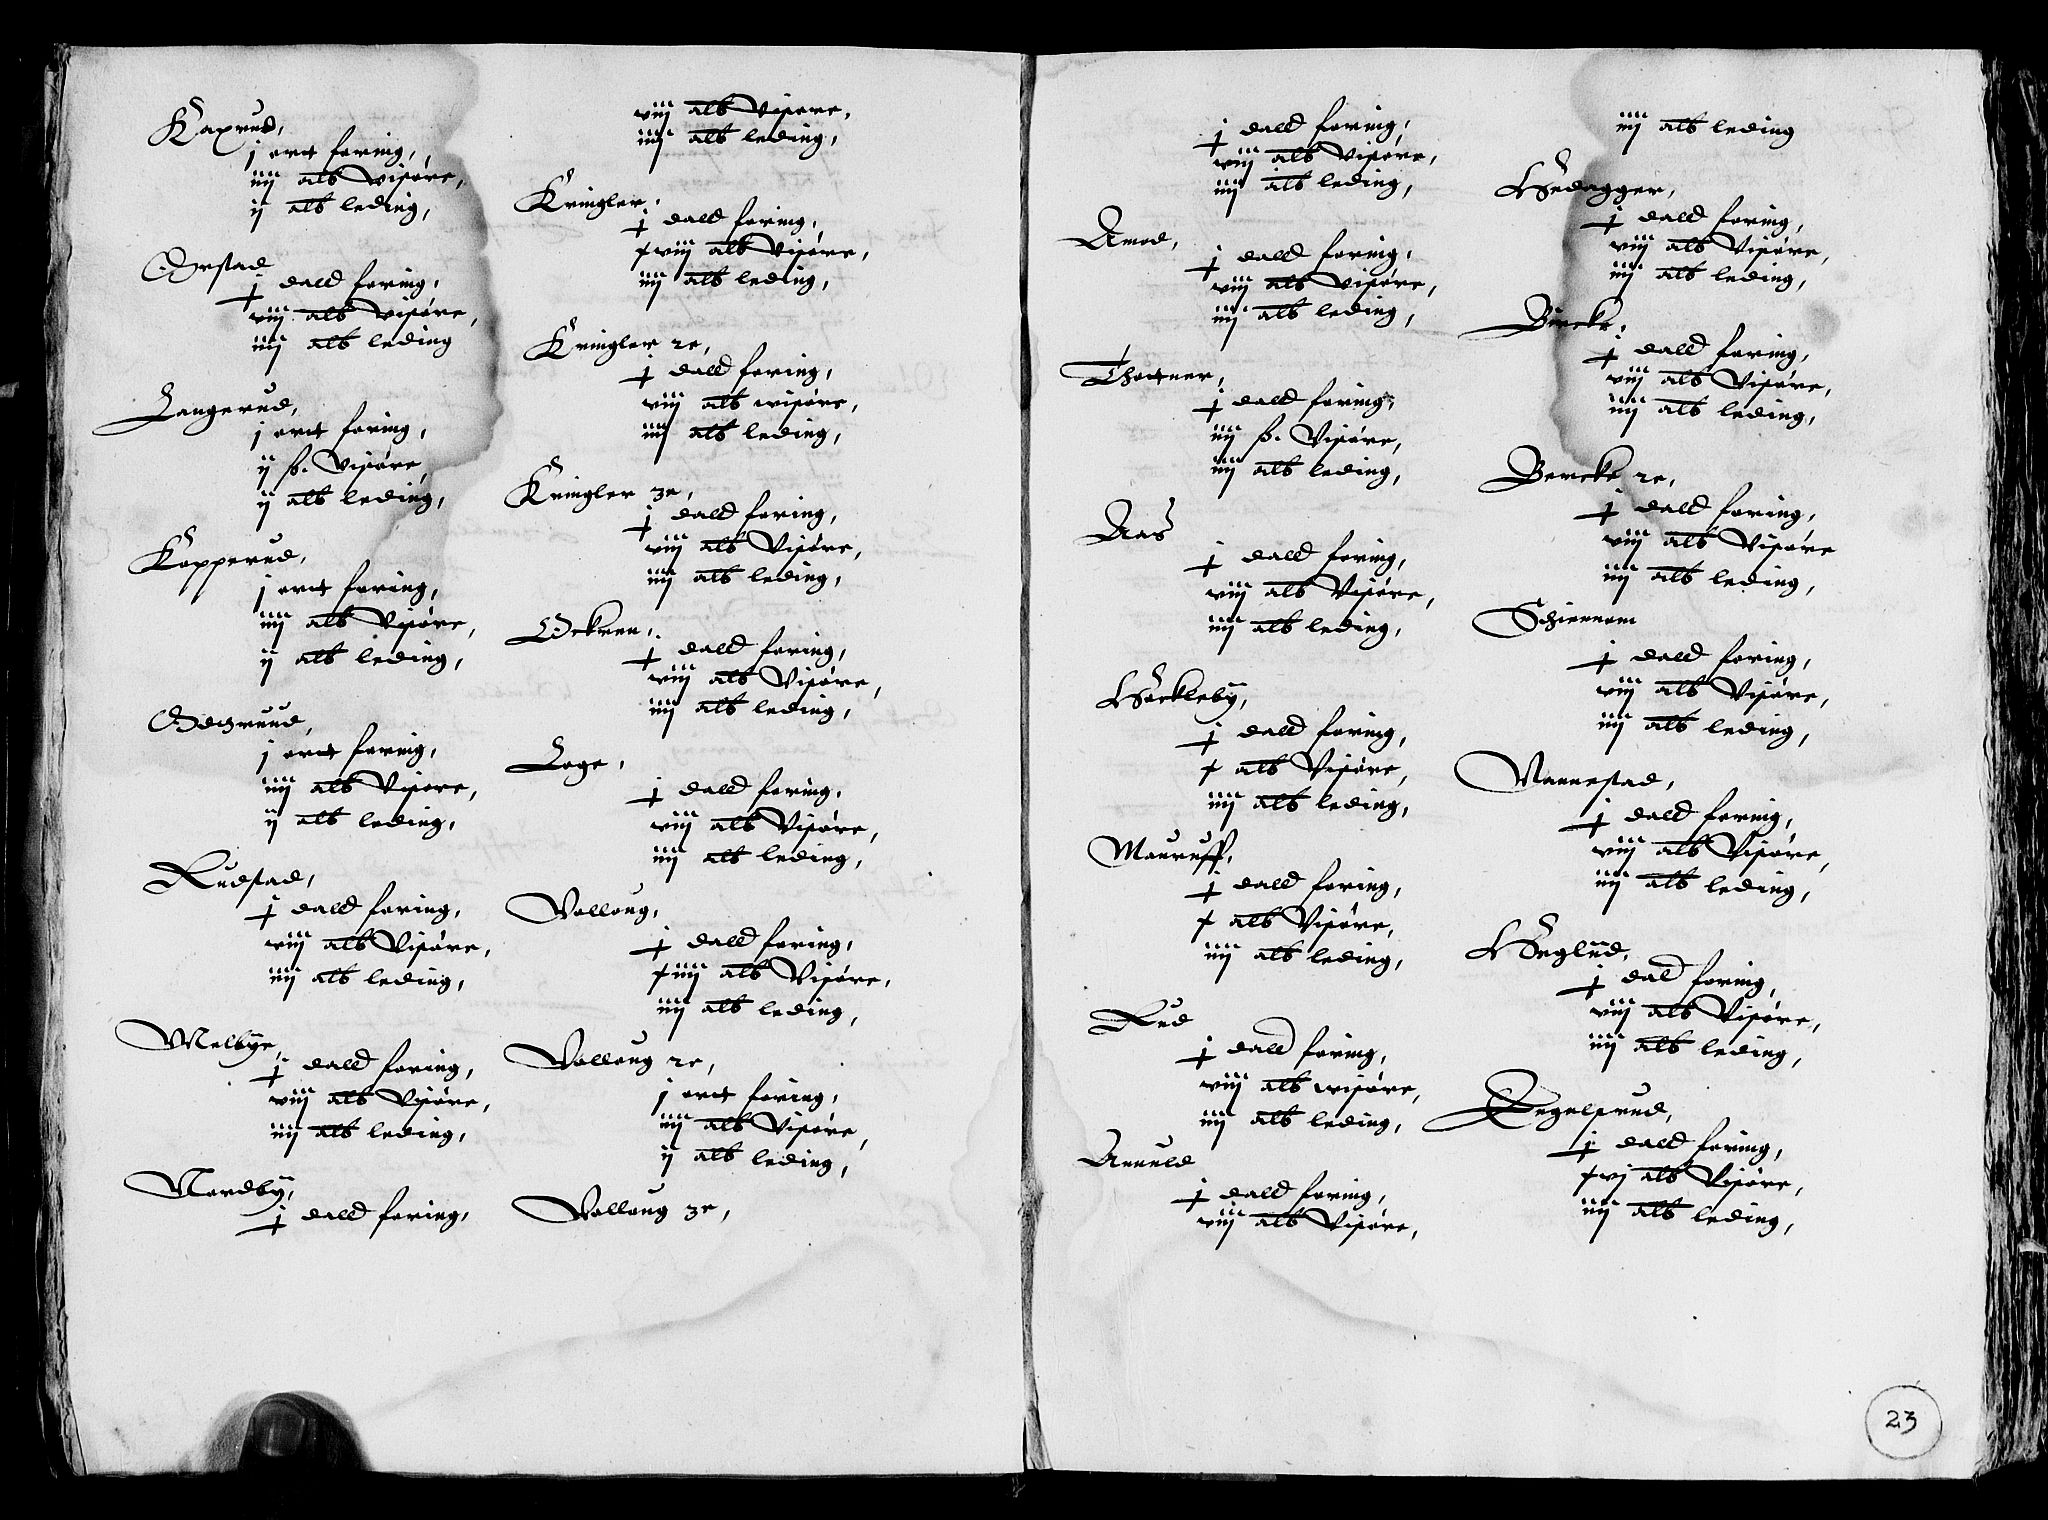 Kaxrud,
j ort foring,
iiij alb Visøre,
ij alb leding,
Ørstad
j dald foring,
viij alb visøre,
iiij alb leding
Langerud,
j ort foring,
ij ß. Visøre,
ij alb leding,
Kopperud,
j ort foring,
iiij alb Visøre,
ij alb leding,
j ort foring,
iiij alb Visøre,
ij alb leding,
Rudstad,
j dald foring,
viij alb Visøre,
iiij alb leding,
Melbye,
j dald foring,
viij alb Visøre,
iiij alb leding,
Nordby,
j dald foring,
viij alb Visøre,
iiij alb leding,
Kringler,
j dald foring,
xviij alb Visøre,
iiij alb leding,
Kringler 2e,
j dald foring,
viij alb wisøre,
iiij alb leding,
Kringler 3e,
j dald foring,
viij alb Visøre,
iiij alb leding,
Økren,
j dald foring,
viij alb Visøre,
iiij alb leding,
Loge,
j dald foring,
viij alb Visøre,
iiij alb leding,
Volloug,
j dald foring,
xiiij alb Visøre,
iiij alb leding,
Volloug 2e,
j ort foring,
iiij alb Visøre,
ij alb leding,
Volloug 3e,
j dald foring,
viij alb Visøre,
iiij alb leding,
Amod,
j dald foring,
viij alb Visøre,
iiij alb leding,
Thottner,
j dald foring,
iiij ß. Visøre,
iiij alb leding,
Aas
j dald foring,
viij alb Visøre,
iiij alb leding,
Høckleby,
j dald foring,
x alb Visøre,
iiij alb leding,
Mouruff,
j dald foring,
x alb Visøre,
iiij alb leding,
Rud
j dald foring,
viij alb wisøre,
iiij alb leding,
Annuld
j dald foring,
viij alb Visøre,
iiij alb leding
Hedagger,
j dald foring,
viij alb Visøre,
iiij alb leding,
Bercke,
j dald foring,
viij alb Visøre,
iiij alb leding,
Bercke 2e,
j dald foring,
viij alb Visøre
iiij alb leding,
Schiennom
j dald foring,
viij alb Visøre,
iiij alb leding,
Nannestad,
j dald foring,
viij alb Visøre,
iiij alb leding,
Heglud,
j dald foring,
viij alb Visøre,
iiij alb leding,
Engelsrud,
j dald foring,
xvj alb Visøre,
iiij alb leding,
23